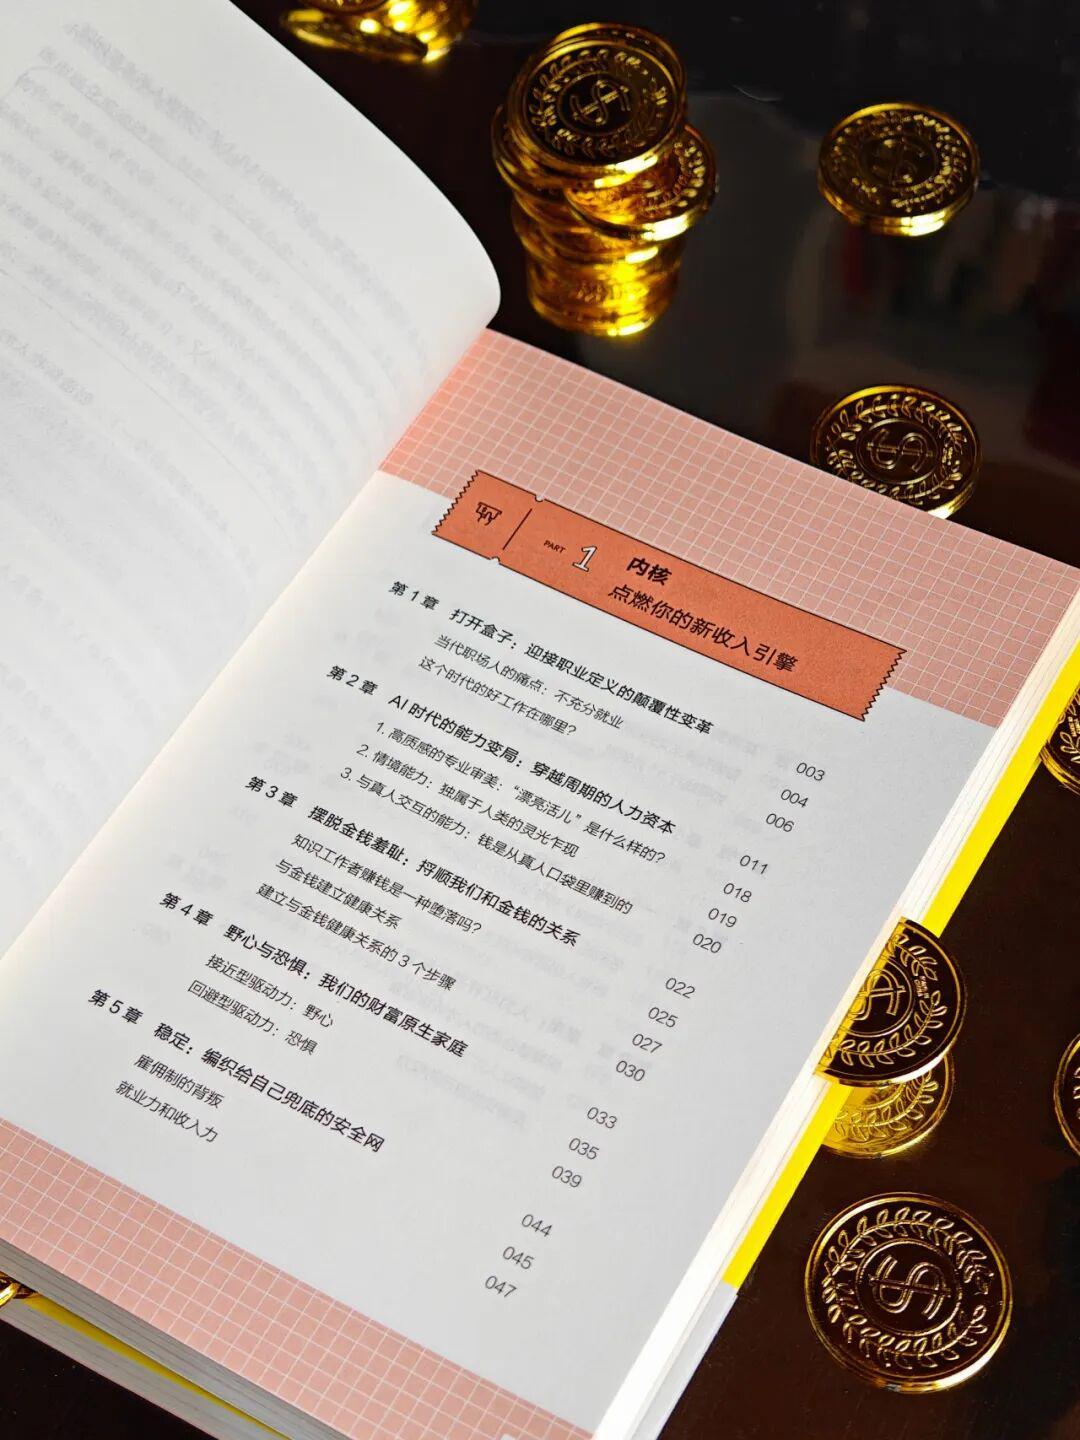 PART 1 内核
点燃你的新收入引擎
第 1 章 打开盒子：迎接职业定义的颠覆性变革 003
当代职场人的痛点：不充分就业 004
这个时代的好工作在哪里？ 006
第 2 章 AI 时代的能力变局：穿越周期的人力资本 011
1. 高质感的专业审美：“漂亮活儿”是什么样的？ 018
2. 情境能力：独属于人类的灵光乍现 019
3. 与真人交互的能力：钱是从真人口袋里赚到的 020
第 3 章 摆脱金钱羞耻：捋顺我们和金钱的关系 022
知识工作者赚钱是一种堕落吗？ 025
与金钱建立健康关系 027
建立与金钱健康关系的 3 个步骤 030
第 4 章 野心与恐惧：我们的财富原生家庭 033
接近型驱动力：野心 035
回避型驱动力：恐惧 039
第 5 章 稳定：编织给自己兜底的安全网 044
雇佣制的背叛 045
就业力和收入力 047